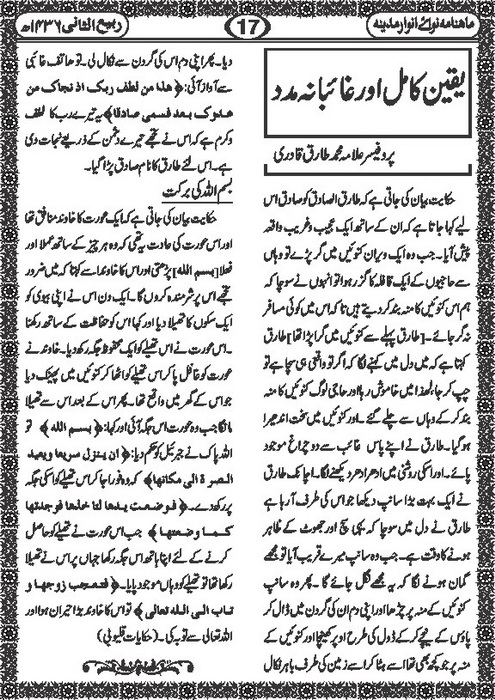 ماھنامہ نوائے انوار مدینہ
17
ربیع الثانی ۱۴۳۶ھ
یقین کامل اور غائبانہ مدد
پروفیسر علامہ محمد طارق قادری
حکایت بیان کی جاتی ہے کہ طارق الصادق کو صادق اس
لیے کہا جاتا ہے کہ ان کے ساتھ ایک عجیب وغریب واقعہ
پیش آیا۔ جب وہ ایک ویران کنوئیں میں گر پڑے تو وہاں
سے حاجیوں کے ایک قافلہ کا گزر ہوا تو انہوں نے سوچا کہ
ہم اس کنوئیں کا منہ بند کر دیتے ہیں تا کہ اس میں کوئی مسافر
نہ گر جائے۔ [طارق پہلے سے کنوئیں میں گرا پڑا تھا] طارق
کہتا ہے کہ میں دل میں کہنے لگا کہ اگر تو واقعی ہی سچا ہے تو
چپ کر جا، لھذا میں خاموش رہا اور حاجی لوگ کنوئیں کا منہ
بند کر کے وہاں سے چلے گئے۔ اور کنوئیں میں سخت اندھیرا
ہو گیا۔ طارق نے اپنے پاس غائب سے دو چراغ موجود
پائے۔ اور اسکی روشنی میں ادھر ادھر دیکھنے لگا۔ اچانک طارق
نے ایک بہت بڑا سانپ دیکھا جو اس کی طرف آ رہا ہے
طارق نے دل میں سوچا کہ یہی سچ اور جھوٹ کے ظاہر
ہونے کا وقت ہے۔ جب وہ سانپ میرے قریب آیا تو مجھے
گمان ہونے لگا کہ یہ مجھے نگل جائے گا۔ پھر وہ سانپ
کنوئیں کے منہ پر چڑھا اور اپنی دم ان کی گردن میں ڈال کر
پاؤں کے نیچے کر کے ڈول کی طرح اوپر کھینچا اور کنوئیں کے
منہ پر جو کچھ بھی تھا اسے ہٹا کر اسے زمین کی طرف باہر نکال
دیا۔ پھر اپنی دم اس کی گردن سے نکال لی۔ تو ھاتف غائبی
سے آواز آئی: ﴿ھذا من لطف ربک اذ نجاک من
عدوک بعد قسمی صادقا﴾ یہ تیرے رب کا لطف
وکرم ہے کہ اس نے تجھے تیرے دشمن کے ذریعے نجات دی
ہے۔ اس لئے طارق کا نام صادق پڑا گیا۔
بسم اللہ کی برکت
حکایت بیان کی جاتی ہے کہ ایک عورت کا خاوند منافق تھا
اور اس عورت کی عادت یہ تھی کہ وہ ہر چیز کے ساتھ عملا اور
فعلا [بسم اللہ] پڑھتی اور اس کا خاوند اسے کہتا کہ میں ضرور
تجھے اس پر شرمندہ کروں گا۔ ایک دن اس نے اپنی بیوی کو
ایک سکوں کا تھیلا دیا اور کہا اس کو حفاظت کے ساتھ رکھنا
۔ اس عورت نے اس تھیلے کو ایک محفوظ جگہ رکھ دیا۔ خاوند نے
عورت کو غافل پا کر اس تھیلے کو اٹھا کر کنوئیں میں پھینک دیا
جو اس کے گھر میں واقع تھا۔ پھر اس کے بعد اس سے تھیلا
مانگا جب وہ عورت اس جگہ آئی اور کہا: ﴿بسم اللہ﴾ تو
اللہ پاک نے جبرئیل کو حکم دیا: ﴿ان ینزل سریعا ویعید
الصرۃ الی مکانھا﴾ کہ وہ فورا جا کر اس تھیلے کو اسکی جگہ
پر رکھ دے۔ ﴿فوضعت یدھا لتاخذھا فوجدتھا
کما وضعتھا﴾ جب اس عورت نے تھیلے کو حاصل
کرنے کے لئے اپنا ہاتھ اس جگہ رکھا جہاں پر اس نے تھیلا
رکھا تھا تو تھیلے کو وہاں موجود پایا۔ ﴿فتعجب زوجھا و
تاب الی اللہ تعالی﴾ تو اس کا خاوند بڑا حیران ہوا اور
اللہ تعالی سے توبہ کی۔ (حکایات قلیوبی)